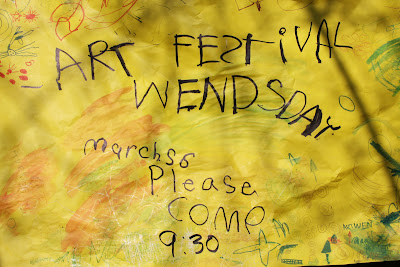 ART FESTIVAL
WENDSDAY
march 56
Please
COME
9.30